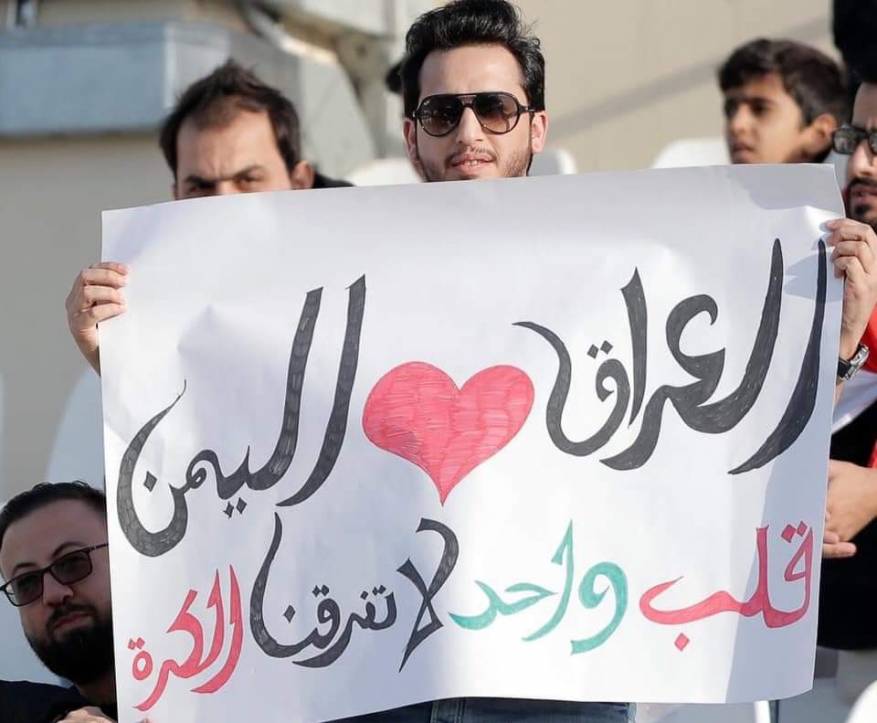 العراق ♥ اليمن
قلب واحد لا تفرقنا الكرة